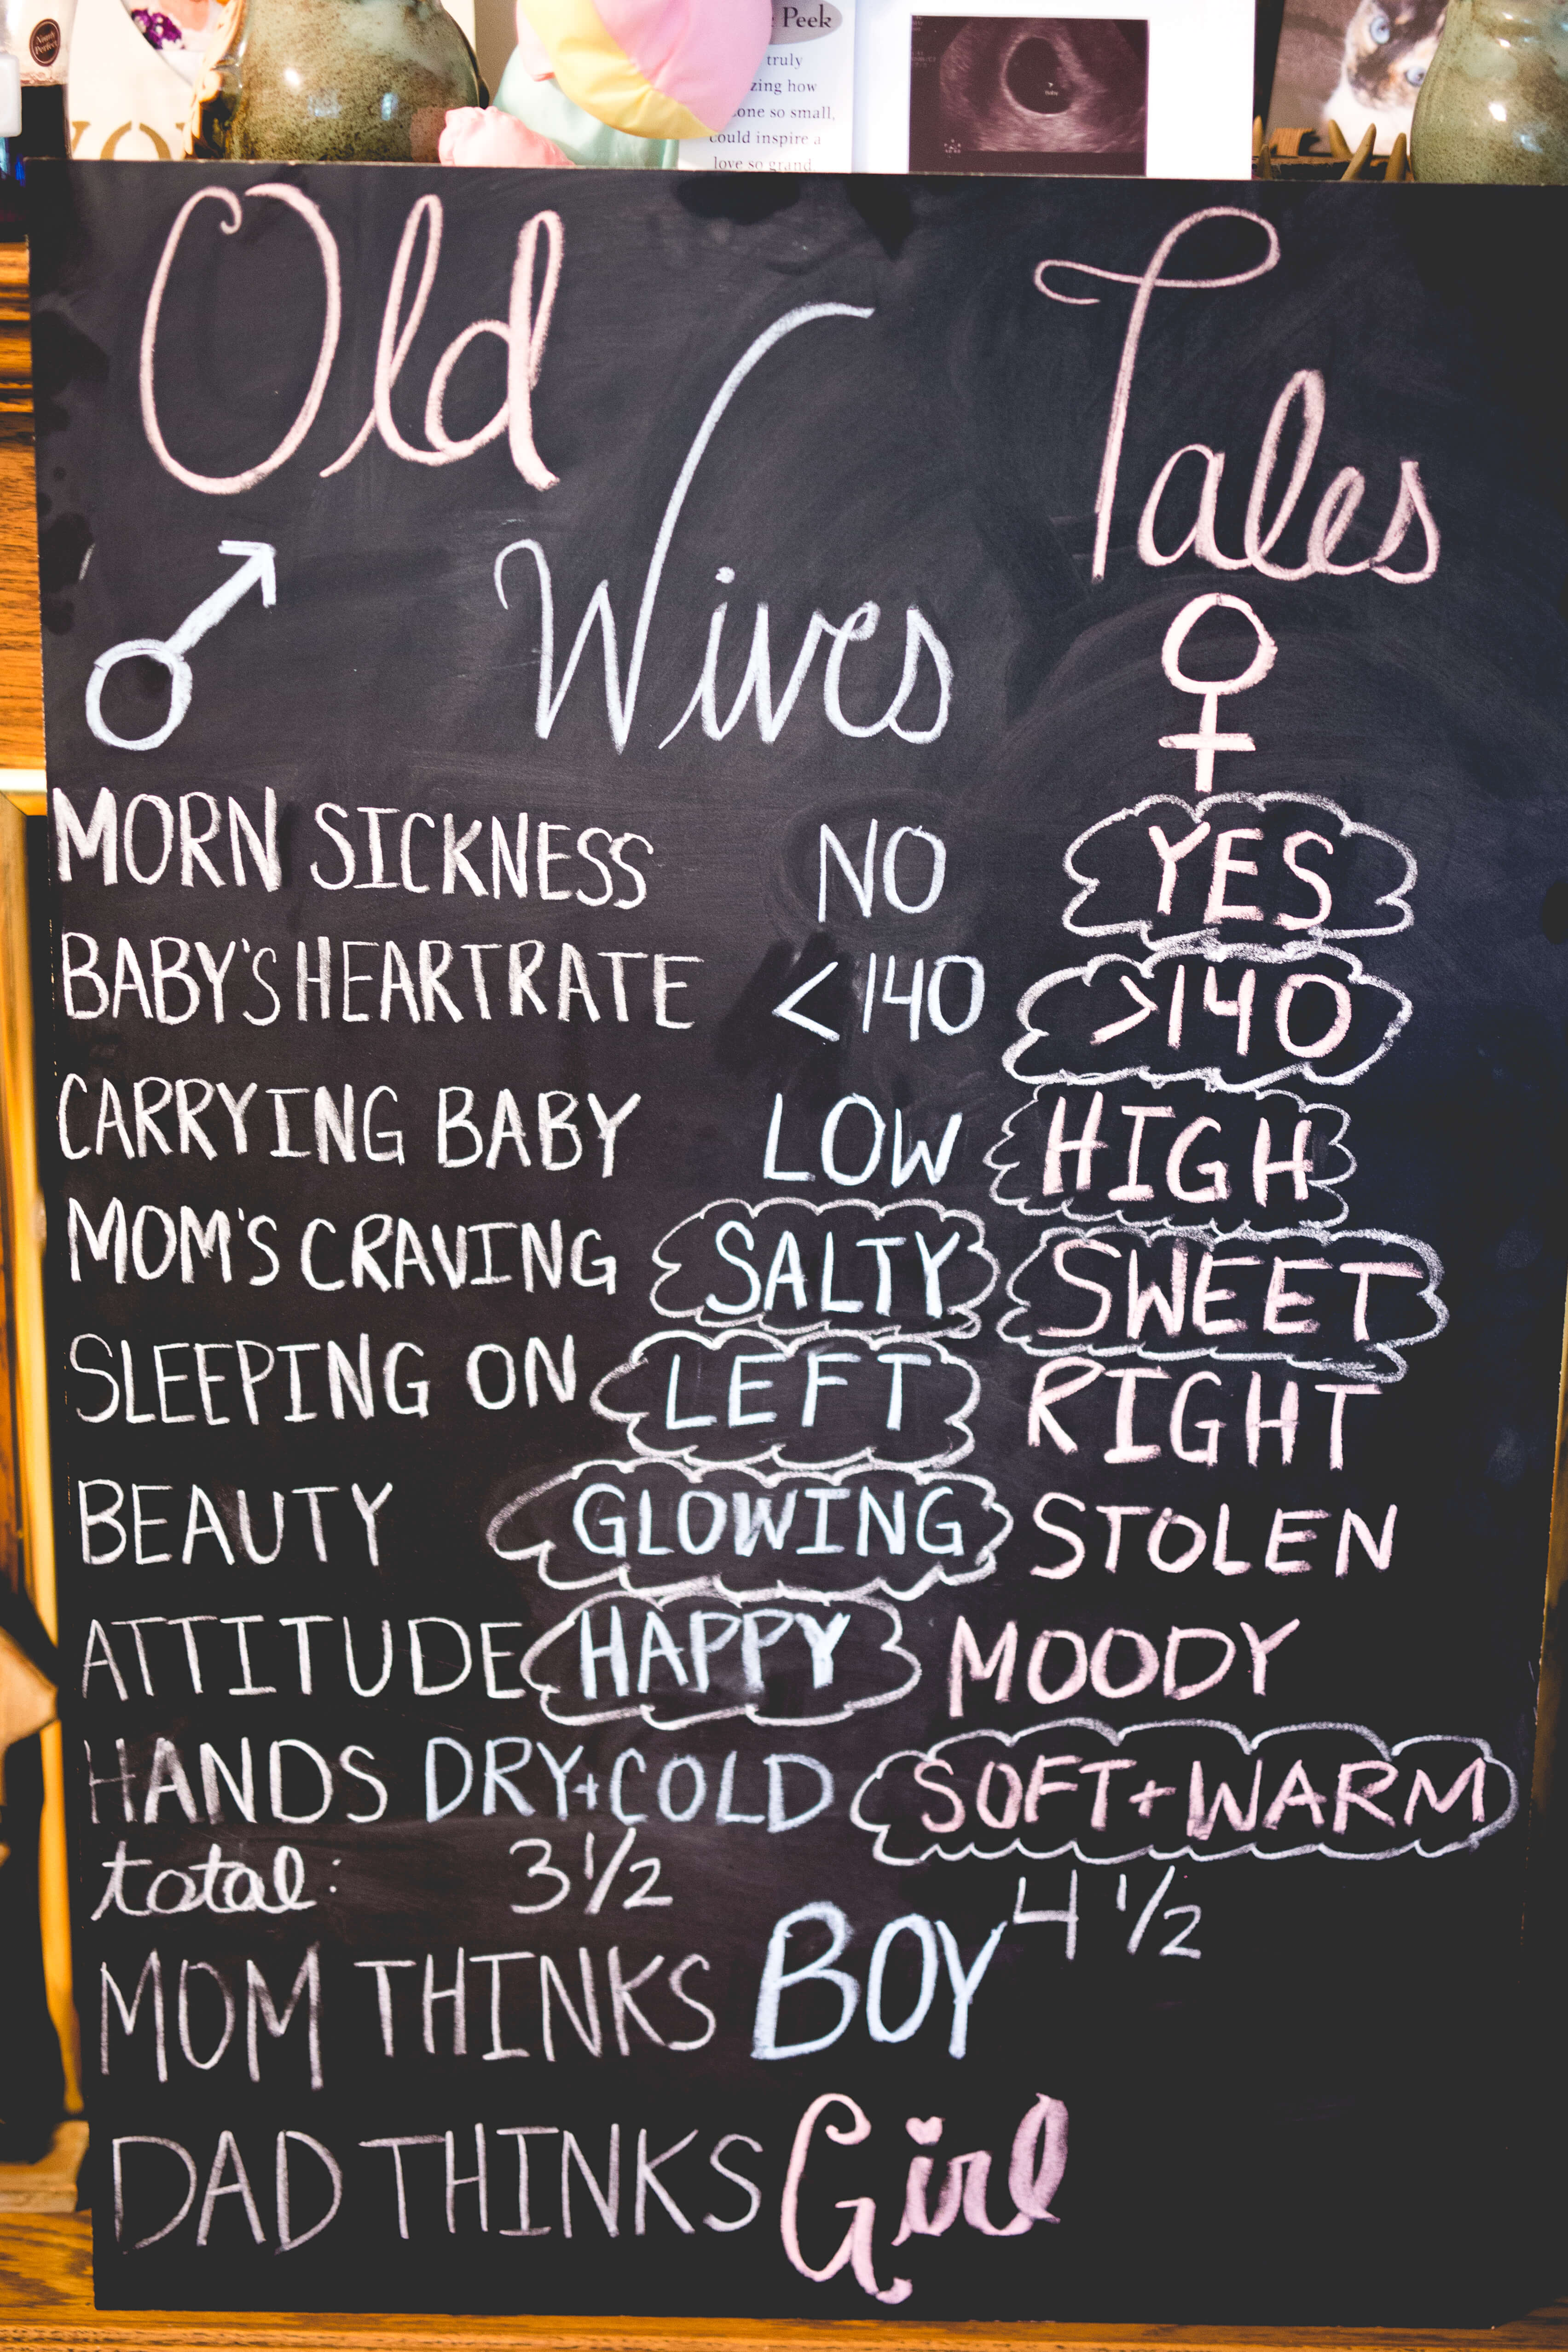 Nourish Perfect
Peek
truly
zing how
one so small,
could inspire a
love so grand.
Old Wives Tales
♂ ♀
MORN SICKNESS NO YES
BABY'S HEARTRATE <140 >140
CARRYING BABY LOW HIGH
MOM'S CRAVING SALTY SWEET
SLEEPING ON LEFT RIGHT
BEAUTY GLOWING STOLEN
ATTITUDE HAPPY MOODY
HANDS DRY+COLD SOFT+WARM
total: 3 1/2 4 1/2
MOM THINKS BOY
DAD THINKS Girl